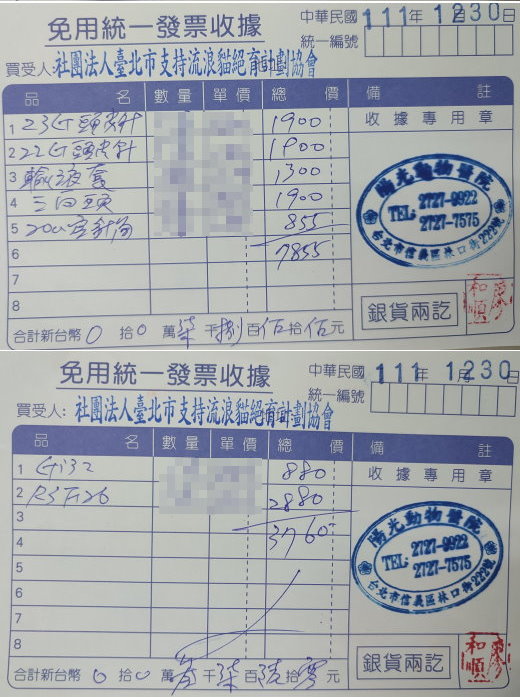 免用統一發票收據
中華民國 111年 12月30日
統一編號
買受人: 社團法人臺北市支持流浪貓絕育計劃協會
品 名 數量 單價 總 價 備 註
1 23G頭皮針 1900
2 22G頭皮針 1900
3 輸液套 1300
4 三向頭 1900
5 20cc空針筒 855
6 7855
7
8
收據專用章
陽光動物醫院
TEL: 2727-9922
2727-7575
台北市信義區林口街222號
銀貨兩訖
合計新台幣 0 拾 0 萬 柒 千 捌 百 伍 拾 伍 元
免用統一發票收據
中華民國 111年 12月30日
統一編號
買受人: 社團法人臺北市支持流浪貓絕育計劃協會
品 名 數量 單價 總 價 備 註
1 Gi32 880
2 RSF26 2880
3 3760
4
5
6
7
8
收據專用章
陽光動物醫院
TEL: 2727-9922
2727-7575
台北市信義區林口街222號
銀貨兩訖
合計新台幣 0 拾 0 萬 參 千 柒 百 陸 拾 零 元